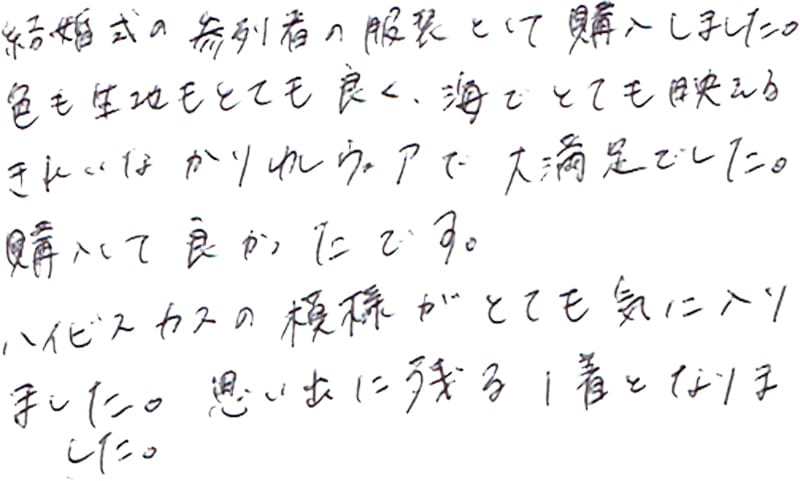 結婚式の参列者の服装として購入しました。
色も生地もとても良く、海でとても映える
きれいなかりゆしウェアで大満足でした。
購入して良かったです。
ハイビスカスの模様がとても気に入り
ました。思い出に残る1着となりま
した。